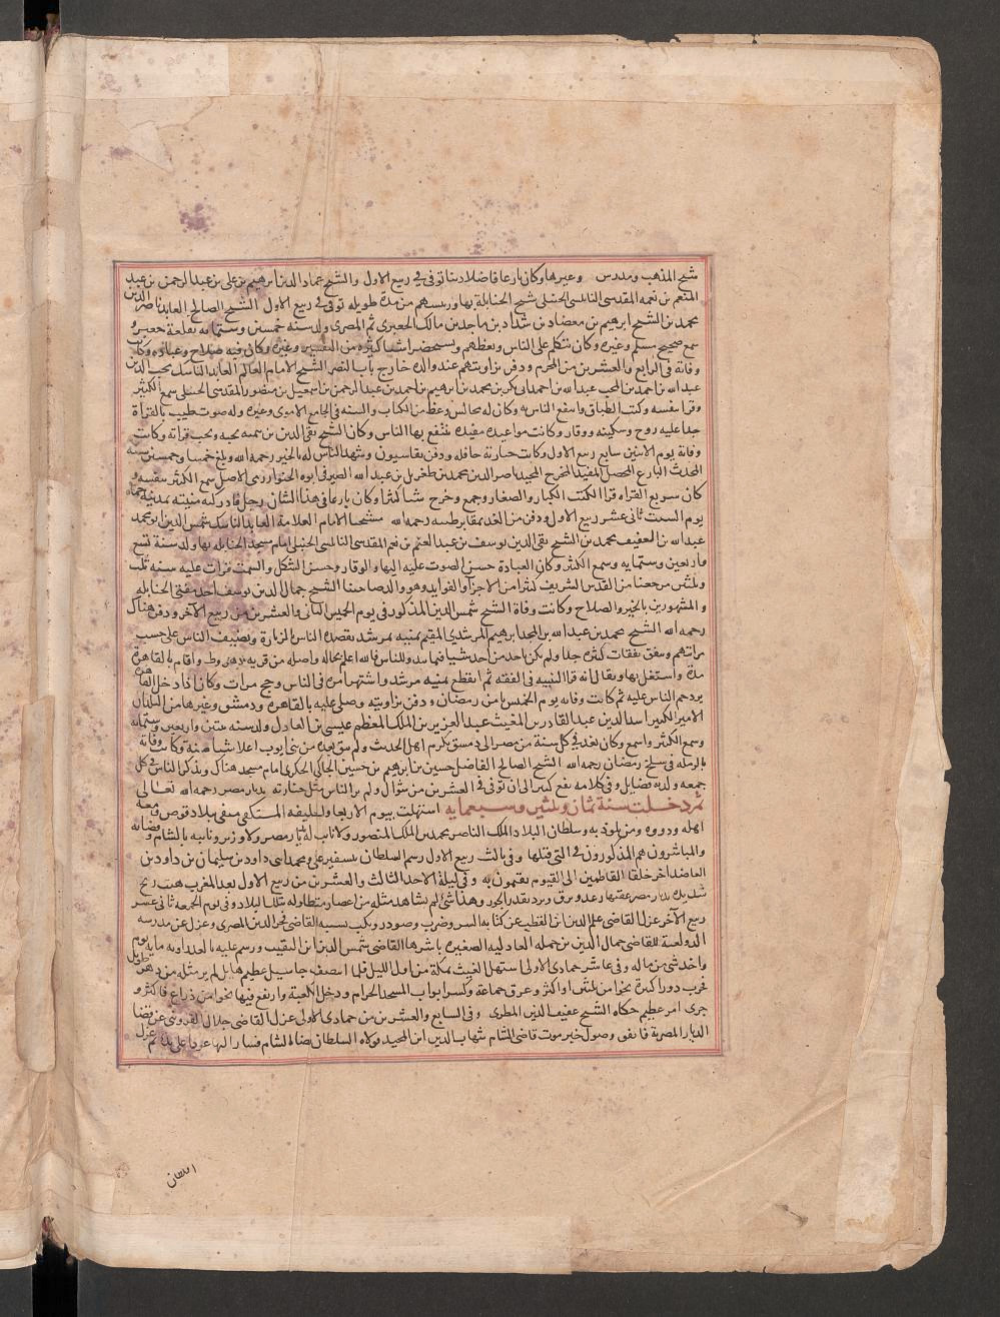 شيخ المذهب ومدرس وغيرها وكان بارعا فاضلا دينا توفى فى ربيع الاول والشيخ عماد الدين ابرهيم بن على بن عبد الرحمن بن عبد
المنعم بن نعمه المقدسى النابلسى الحنبلى شيخ الحنابلة بها ورييسهم من مدة طويله توفى فى ربيع الاول الشيخ الصالح العابد ناصر الدين
محمد بن الشيخ ابرهيم بن معضاد بن شداد بن ماجد بن مالك الجعبرى ثم المصرى ولد سنه خمسين وستمايه بقلعة جعبر و
سمع صحيح مسلم وغيره وكان يتكلم على الناس ويعظهم ويستحضر اشيا كثيره من التفسير وغيره وكان فيه صلاح وعباده وكانت
وفاته فى الرابع والعشرين من المحرم ودفن بزاويتهم عند والده خارج باب النصر الشيخ الامام العالم العابد الناسك محب الدين
عبد الله بن احمد بن المحب عبد الله بن احمد بن ابى بكر بن محمد بن ابرهيم بن احمد بن عبد الرحمن بن اسمعيل بن منصور المقدسى الحنبلى سمع الكثير
وقرا بنفسه وكتب الطباق وانتفع الناس به وكان له مجالس وعظ من الكتاب والسنه فى الجامع الاموى وغيره وله صوت طيب بالقراة
جدا عليه روح وسكينه ووقار وكانت مواعيده مفيده ينتفع بها الناس وكان الشيخ تقى الدين بن تيميه يحبه ويحب قراته وكانت
وفاته يوم الاثنين سابع ربيع الاول وكانت جنازته حافله ودفن بقاسيون وشهد الناس له بالخير رحمه الله وبلغ خمسا وخمسين سنه
المحدث البارع المحصل المفيد المخرج المجيد ناصر الدين محمد بن طغربل بن عبد الله الصيرفى ابوه الخوارزمى الاصل سمع الكثير بنفسه و
كان سريع القراه قرا الكتب الكبار والصغار وجمع وخرج شيا كثيرا وكان بارعا فى هذا الشان رحل فادركته منيته بمدينه حماه
يوم السبت ثانى عشر ربيع الاول ودفن من الغد بمقابر طيبه رحمه الله شيخنا الامام العلامة العابد الناسك شمس الدين ابو محمد
عبد الله بن العفيف محمد بن الشيخ تقى الدين يوسف بن عبد المنعم بن نعمه المقدسى النابلسى الحنبلى امام مسجد الحنابله بها ولد سنة تسع
واربعين وستمايه وسمع الكثير وكان كثير العبادة حسن الصوت عليه البها والوقار وحسن الشكل والسمت قرات عليه سنه ثلث
وثلثين مرجعنا من القدس الشريف كثيرا من الاجزا والفوايد وهو والد صاحبنا الشيخ جمال الدين يوسف احد مفتى الحنابله
والمشهورين بالخير والصلاح وكانت وفاة الشيخ شمس الدين المذكور فى يوم الخميس الثانى والعشرين من ربيع الآخر ودفن هناك
رحمه الله الشيخ محمد بن عبد الله بن المجد ابرهيم المرشدى المقيم بمنيه مرشد يقصده الناس للزيارة ويضيف الناس على حسب
مراتبهم وينفق نفقات كثيره جدا ولم يكن ياخذ من احد شيا فيما يبدو للناس فالله اعلم بحاله واصله من قريه دهروط واقام بالقاهرة
مدة واشتغل بها ويقال انه قرا التنبيه فى الفقه ثم انقطع بمنيه مرشد واشتهر امره فى الناس وحج مرات وكان اذا دخل القاهره
يزدحم الناس عليه ثم كانت وفاته يوم الخميس ثامن رمضان ودفن بزاويته وصلى عليه بالقاهره ودمشق وغيرها من البلدان
الامير الكبير اسد الدين عبد القادر بن المغيث عبد العزيز بن الملك المعظم عيسى بن العادل ولد سنه ثنتين واربعين وستمايه
وسمع الكثير واسمع وكان يفد فى كل سنة من مصر الى دمشق يكرم اهل الحديث ولم يبق بعده من بنى ايوب اعلا سنا منه وكانت وفاته
بالرمله فى سلخ رمضان رحمه الله الشيخ الصالح الفاضل حسين بن ابرهيم بن حسين الجاكى الحكرى امام مسجد هناك ويذكر الناس فى كل
جمعه ولديه فضايل وفى كلامه نفع كثير الى ان توفى فى العشرين من شوال ولم ير الناس مثل جنازته بديار مصر رحمه الله تعالى
ثم دخلت سنة ثمان وثلثين وسبعمايه استهلت بيوم الاربعا والخليفه المستكفى منفى ببلاد قوص ومعه
اهله وذووه ومن يلوذ به وسلطان البلاد الملك الناصر محمد بن الملك المنصور ولا نايب له بديار مصر ولا وزير ونايبه بالشام وقضاته
والمباشرون هم المذكورون فى التى قبلها وفى ثالث ربيع الاول رسم السلطان بتسفير على ومحمد ابنى داود بن سليمان بن داود بن
العاضد اخر خلفا الفاطميين الى الفيوم يقيمون به وفى ليلة الاحد الثالث والعشرين من ربيع الاول بعد المغرب هبت ريح
شديده بديار مصر عقبها رعد وبرق وبرد بقدر الجوز وهذا شئ لم يشاهد مثله من اعصار متطاوله بتلك البلاد وفى يوم الجمعه ثانى عشر
ربيع الآخر عزل القاضى علم الدين ابن القطب عن كتابه السر وضرب وصودر ونكب بسببه القاضى فخر الدين المصرى وعزل عن مدرسه
الدولعية للقاضى جمال الدين بن جمله العادليه الصغيره باشرها القاضى شمس الدين ابن النقيب ورسم عليه بالعذراويه مايه يوم
واخذ شئ من ماله وفى عاشر جمادى الاولى استهل الغيث بمكة من اول الليل فلما انتصف جا سيل عظيم هايل لم ير مثله من دهر طويل
خرب دورا كثيرة نحوا من ثلثين او اكثر وغرق جماعة وكسر ابواب المسجد الحرام ودخل الكعبة وارتفع فيها نحوا من ذراع فاكثر و
جرى امر عظيم حكاه الشيخ عفيف الدين المطرى وفى السابع والعشرين من جمادى الاولى عزل القاضى جلال القزوينى عن قضا
الديار المصرية فاتفق وصول خبر موت قاضى الشام شهاب الدين ابن المجد فولاه السلطان قضا الشام فسار اليها ثم عزل
السلطان